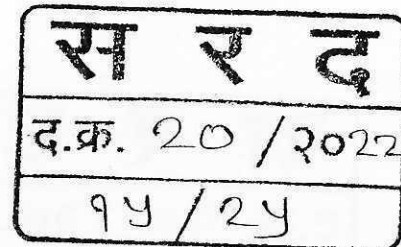 स र द
द.क्र. 20 /२०22
१५ / 2५